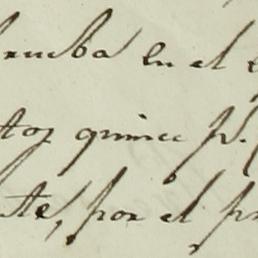 rueba en el
tos quince p.
te, por el pr